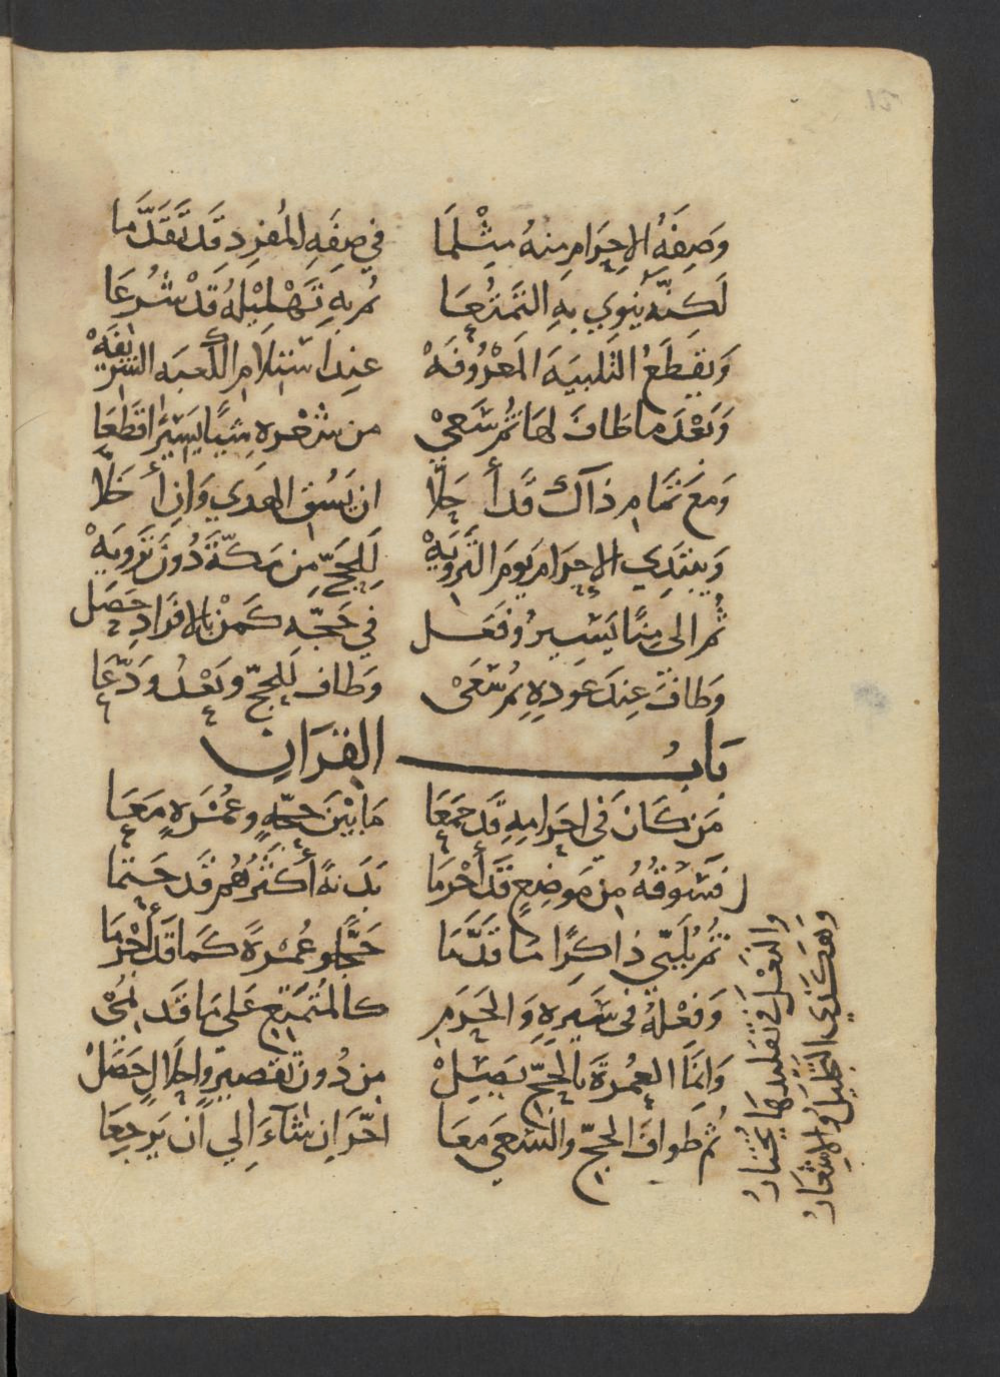 وَصِفَةُ الاِحرَامِ مِنهُ مِثْلَمَا في صِفَةِ المُفرِدِ قَد تَقَدَّمَا
لَكِنَّه يَنوِي بِهِ التَمَتُّعَا ثم بِهِ تَهْلِيْلهُ قَدْ شُرِعَا
وَيَقطَعُ التَلبِيَةَ المَعْرُوفَهْ عِندَ استِلامِ الكَعبَه الشَرِيفَهْ
وَبَعْدَ ما طَافَ لهَا ثُم سَعى من شَعْرِه شَيًا يَسِيرًا قَطَعَا
وَمعَ تَمَامِ ذاكَ قَد أَحَلّا ان يَسُقِ الهَدي وَانِ أَخَلّا
وَيبتَدِي الاِحرَام يَومَ التَروِيَهْ لِلحَجّ مِن مَكّةَ دُونَ تَروِيَهْ
ثُم الى مِنًا يَسِيرُ وفَعَل في حَجّهِ كَمَنْ بالاِفرَادِ حَصَل
وَطافَ عِندَ عودِهِ ثم سَعَىْ وَطاف لِلحجّ وبَعْدُ وَدَّعَا
بَابُ القرَانِ
مَن كَانَ في احرَامِهِ قَد جَمَعَا مَا بَيْنَ حجّةٍ وعُمْرَةٍ مَعَا
فسَوقُهُ مِن مَوضِعٍ قَد أَحْرَمَا بَدَنةً أكثَرُهُم قَد حَتَمَا
ثُم يُلَبّي ذاكِرًا مَا قَدَّمَا حَجًّا وعُمْرَةً كَمَا قَد أحْرَمَا
وَفعْلهُ في سَيرِهِ وَالحَرَمِ كالمُتَمَتِّع عَلى مَا قَد نُمِي
وَانّمَا العُمرَةَ بالحَجّ يَصِلْ مِن دُون تَقصيرٍ واِحلَالٍ حَصَلْ
ثم طوافَ الحجّ والسَعيَ معَا اخّر ان شآءَ اِلي أن يَرجِعَا
وَهَكَذي التَجلِيلُ والاِشعَارُ
والنَعْلُ في تَقليدِهَا يُختَارُ